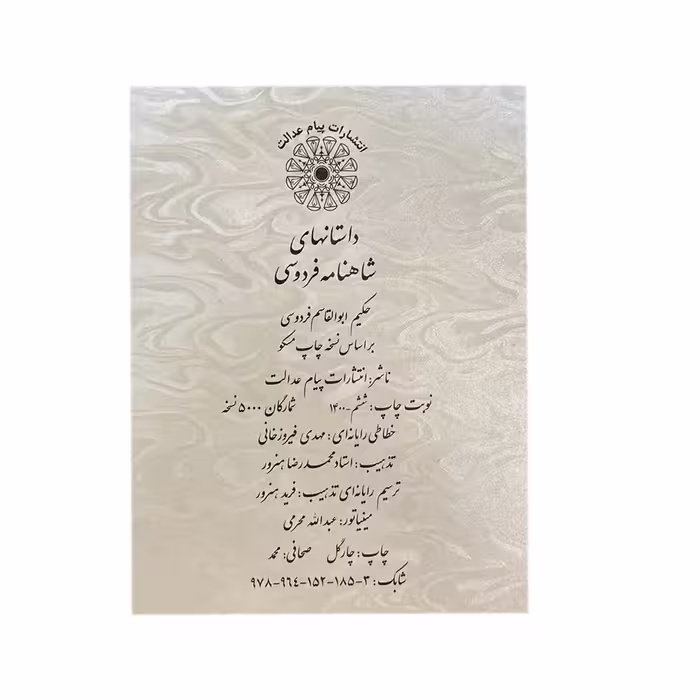 انتشارات پیام عدالت
داستانهای
شاهنامه فردوسی
حکیم ابوالقاسم فردوسی
براساس نسخه چاپ مسکو
ناشر: انتشارات پیام عدالت
نوبت چاپ: ششم-۱۴۰۰ شمارگان ۵۰۰۰ نسخه
خطاطی رایانه‌ای: مهدی فیروزخانی
تذهیب: استاد محمدرضا هنرور
ترسیم رایانه‌ای تذهیب: فرید هنرور
مینیاتور: عبدالله محرمی
چاپ: چارگل صحافی: محمد
شابک: ۳-۱۸۵-۱۵۲-۹۶۴-۹۷۸